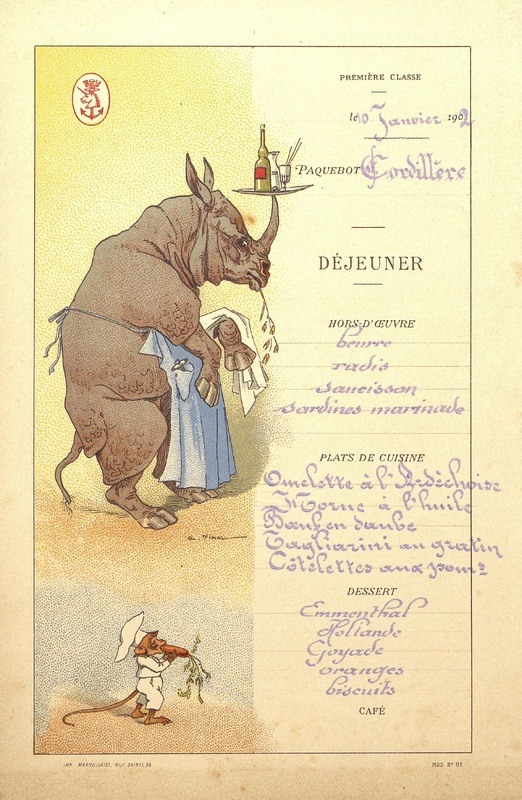 PREMIÈRE CLASSE
le 10 Janvier 1902
PAQUEBOT Cordillère
DÉJEUNER
HORS-D'ŒUVRE
beurre
radis
saucisson
sardines marinade
PLATS DE CUISINE
Omelette à l'Ardéchoise
Morue à l'huile
Bœuf en daube
Tagliarini au gratin
Côtelettes aux poms
DESSERT
Emmenthal
Hollande
Goyade
oranges
biscuits
CAFÉ
IMP. MARSEILLAISE, RUE SAINTE 39